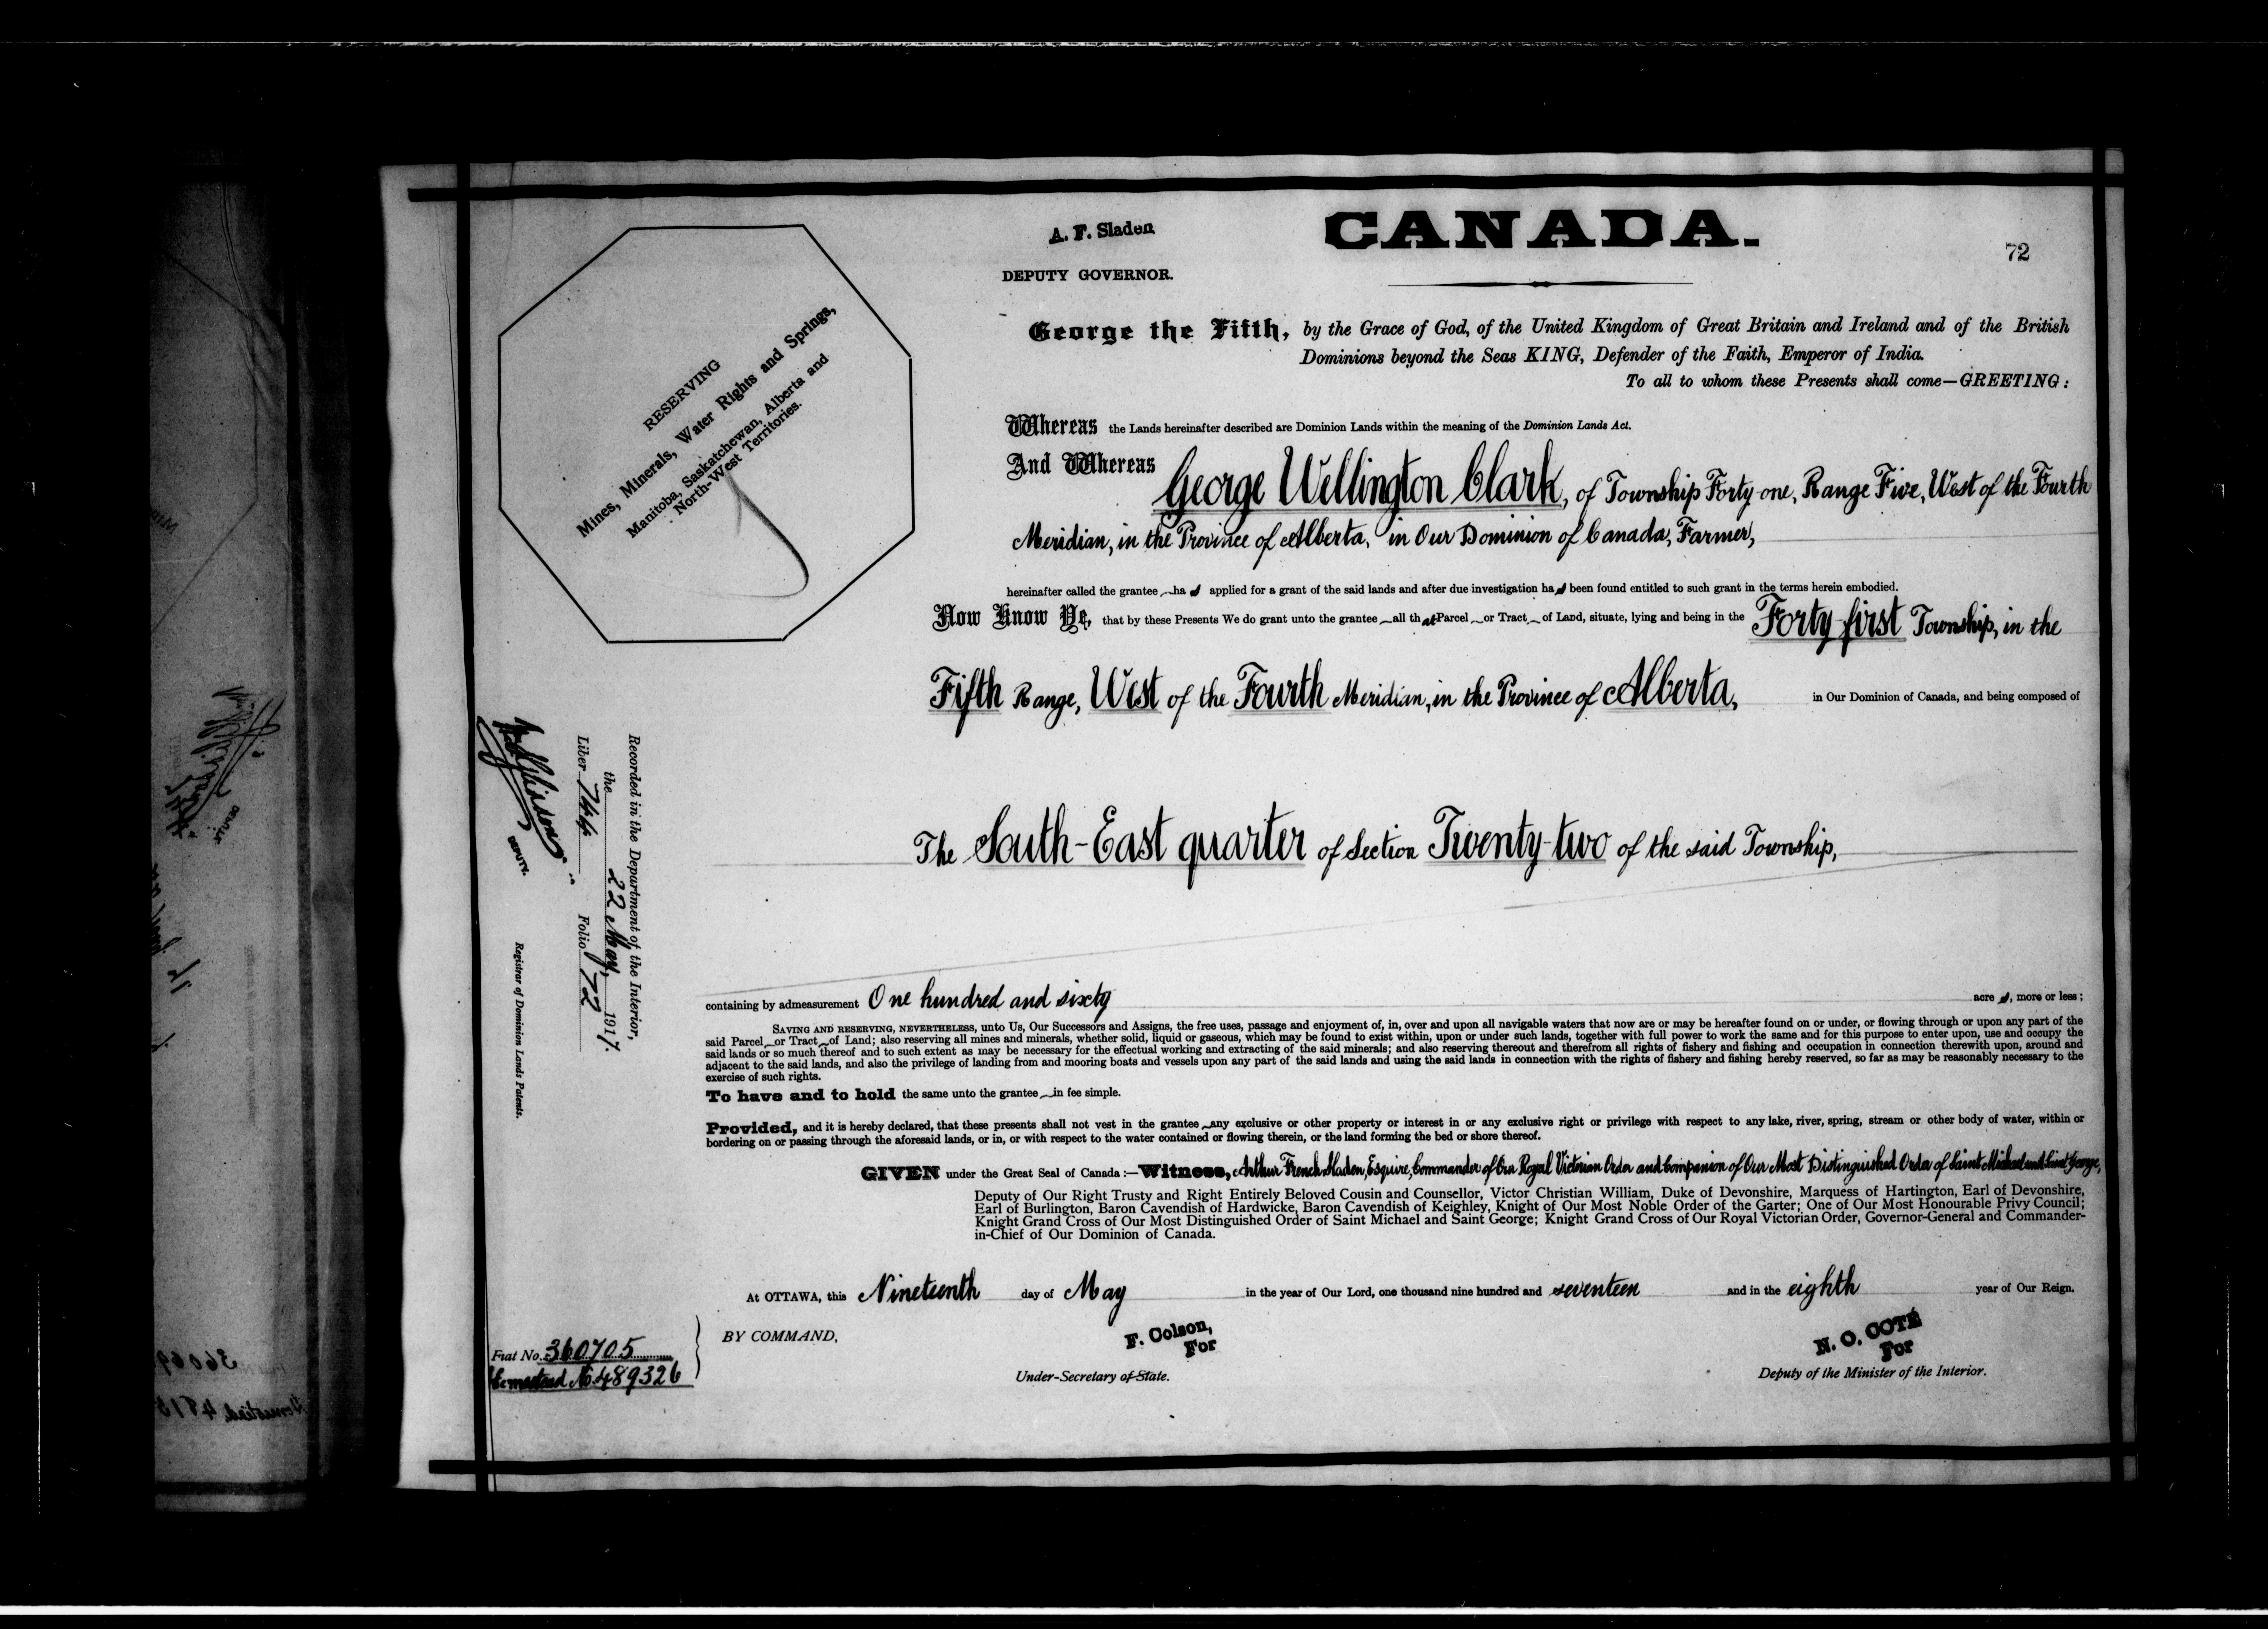 A. F. Sladen
DEPUTY GOVERNOR.
CANADA.
72
RESERVING
Mines, Minerals, Water Rights and Springs,
Manitoba, Saskatchewan, Alberta and
North-West Territories.
George the Fifth, by the Grace of God, of the United Kingdom of Great Britain and Ireland and of the British
Dominions beyond the Seas KING, Defender of the Faith, Emperor of India.
To all to whom these Presents shall come—GREETING:
Whereas the Lands hereinafter described are Dominion Lands within the meaning of the Dominion Lands Act.
And Whereas George Wellington Clark, of Township Forty-one, Range Five, West of the Fourth
Meridian, in the Province of Alberta, in Our Dominion of Canada, Farmer,
hereinafter called the grantee ha s applied for a grant of the said lands and after due investigation ha s been found entitled to such grant in the terms herein embodied.
Now Know Ye, that by these Presents We do grant unto the grantee all that Parcel or Tract of Land, situate, lying and being in the Forty-first Township, in the
Fifth Range, West of the Fourth Meridian, in the Province of Alberta, in Our Dominion of Canada, and being composed of
The South-East quarter of Section Twenty-two of the said Township,
containing by admeasurement One hundred and sixty acre s, more or less;
SAVING AND RESERVING, NEVERTHELESS, unto Us, Our Successors and Assigns, the free uses, passage and enjoyment of, in, over and upon all navigable waters that now are or may be hereafter found on or under, or flowing through or upon any part of the
said Parcel or Tract of Land; also reserving all mines and minerals, whether solid, liquid or gaseous, which may be found to exist within, upon or under such lands, together with full power to work the same and for this purpose to enter upon, use and occupy the
said lands or so much thereof and to such extent as may be necessary for the effectual working and extracting of the said minerals; and also reserving thereout and therefrom all rights of fishery and fishing and occupation in connection therewith upon, around and
adjacent to the said lands, and also the privilege of landing from and mooring boats and vessels upon any part of the said lands and using the said lands in connection with the rights of fishery and fishing hereby reserved, so far as may be reasonably necessary to the
exercise of such rights.
To have and to hold the same unto the grantee in fee simple.
Provided, and it is hereby declared, that these presents shall not vest in the grantee any exclusive or other property or interest in or any exclusive right or privilege with respect to any lake, river, spring, stream or other body of water, within or
bordering on or passing through the aforesaid lands, or in, or with respect to the water contained or flowing therein, or the land forming the bed or shore thereof.
GIVEN under the Great Seal of Canada:—Witness, Arthur French Sladen, Esquire, Commander of Our Royal Victorian Order and Companion of Our Most Distinguished Order of Saint Michael and Saint George,
Deputy of Our Right Trusty and Right Entirely Beloved Cousin and Counsellor, Victor Christian William, Duke of Devonshire, Marquess of Hartington, Earl of Devonshire,
Earl of Burlington, Baron Cavendish of Hardwicke, Baron Cavendish of Keighley, Knight of Our Most Noble Order of the Garter; One of Our Most Honourable Privy Council;
Knight Grand Cross of Our Most Distinguished Order of Saint Michael and Saint George; Knight Grand Cross of Our Royal Victorian Order, Governor-General and Commander-
in-Chief of Our Dominion of Canada.
At OTTAWA, this Nineteenth day of May in the year of Our Lord, one thousand nine hundred and seventeen and in the eighth year of Our Reign.
BY COMMAND,
F. Colson,
For
Under-Secretary of State.
N. O. COTÉ
For
Deputy of the Minister of the Interior.
Recorded in the Department of the Interior,
the 22 May, 1917.
Liber 744 Folio 72
DEPUTY.
Registrar of Dominion Lands Patents.
Fiat No. 360705
Homestead No. 489326